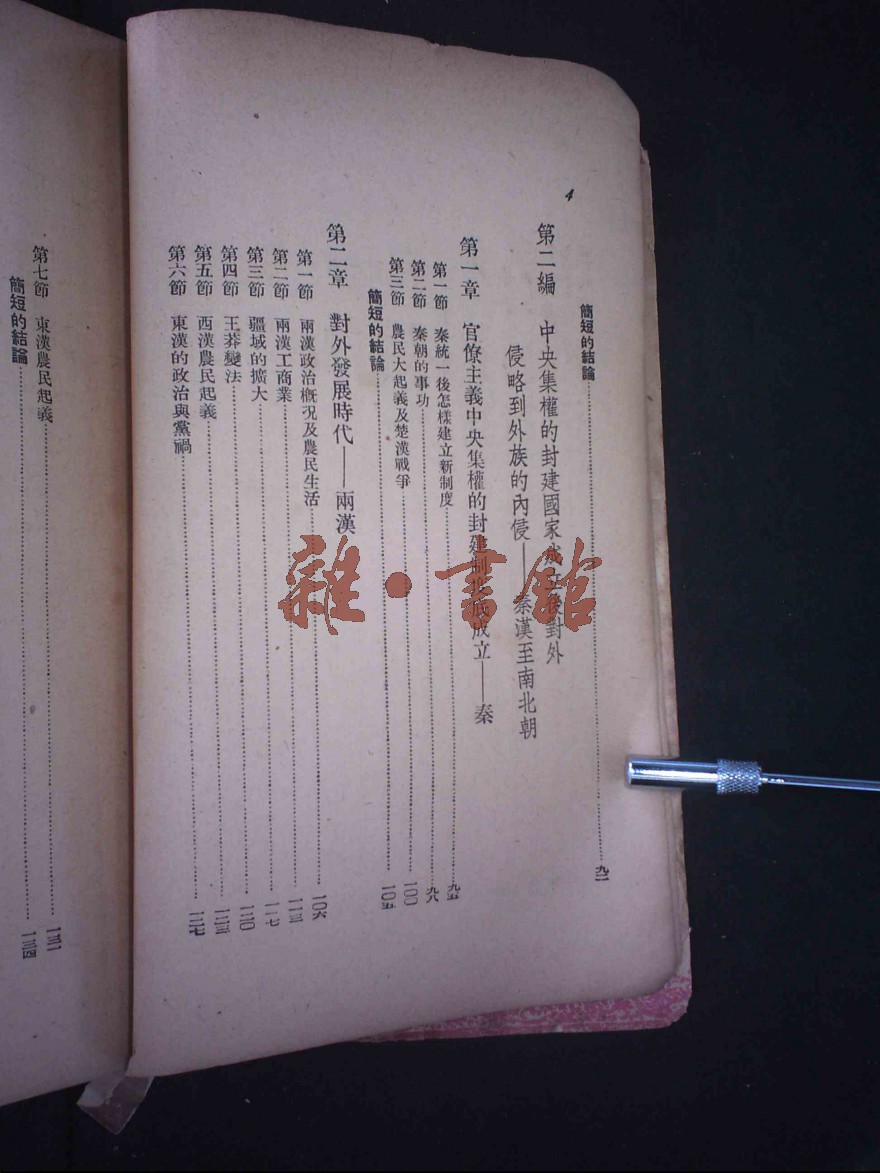 4
簡短的結論……九二
第二編 中央集權的封建國家成立後對外
侵略到外族的內侵——秦漢至南北朝
第一章 官僚主義中央集權的封建制度底成立——秦
第一節 秦統一後怎樣建立新制度……九五
第二節 秦朝的事功……九八
第三節 農民大起義及楚漢戰爭……一〇〇
簡短的結論……一〇五
第二章 對外發展時代——兩漢
第一節 兩漢政治概況及農民生活……一〇六
第二節 兩漢工商業……一一三
第三節 疆域的擴大……一一七
第四節 王莽變法……一二〇
第五節 西漢農民起義……一二三
第六節 東漢的政治與黨禍……一二七
第七節 東漢農民起義……一三二
簡短的結論……一三四
雜·書館